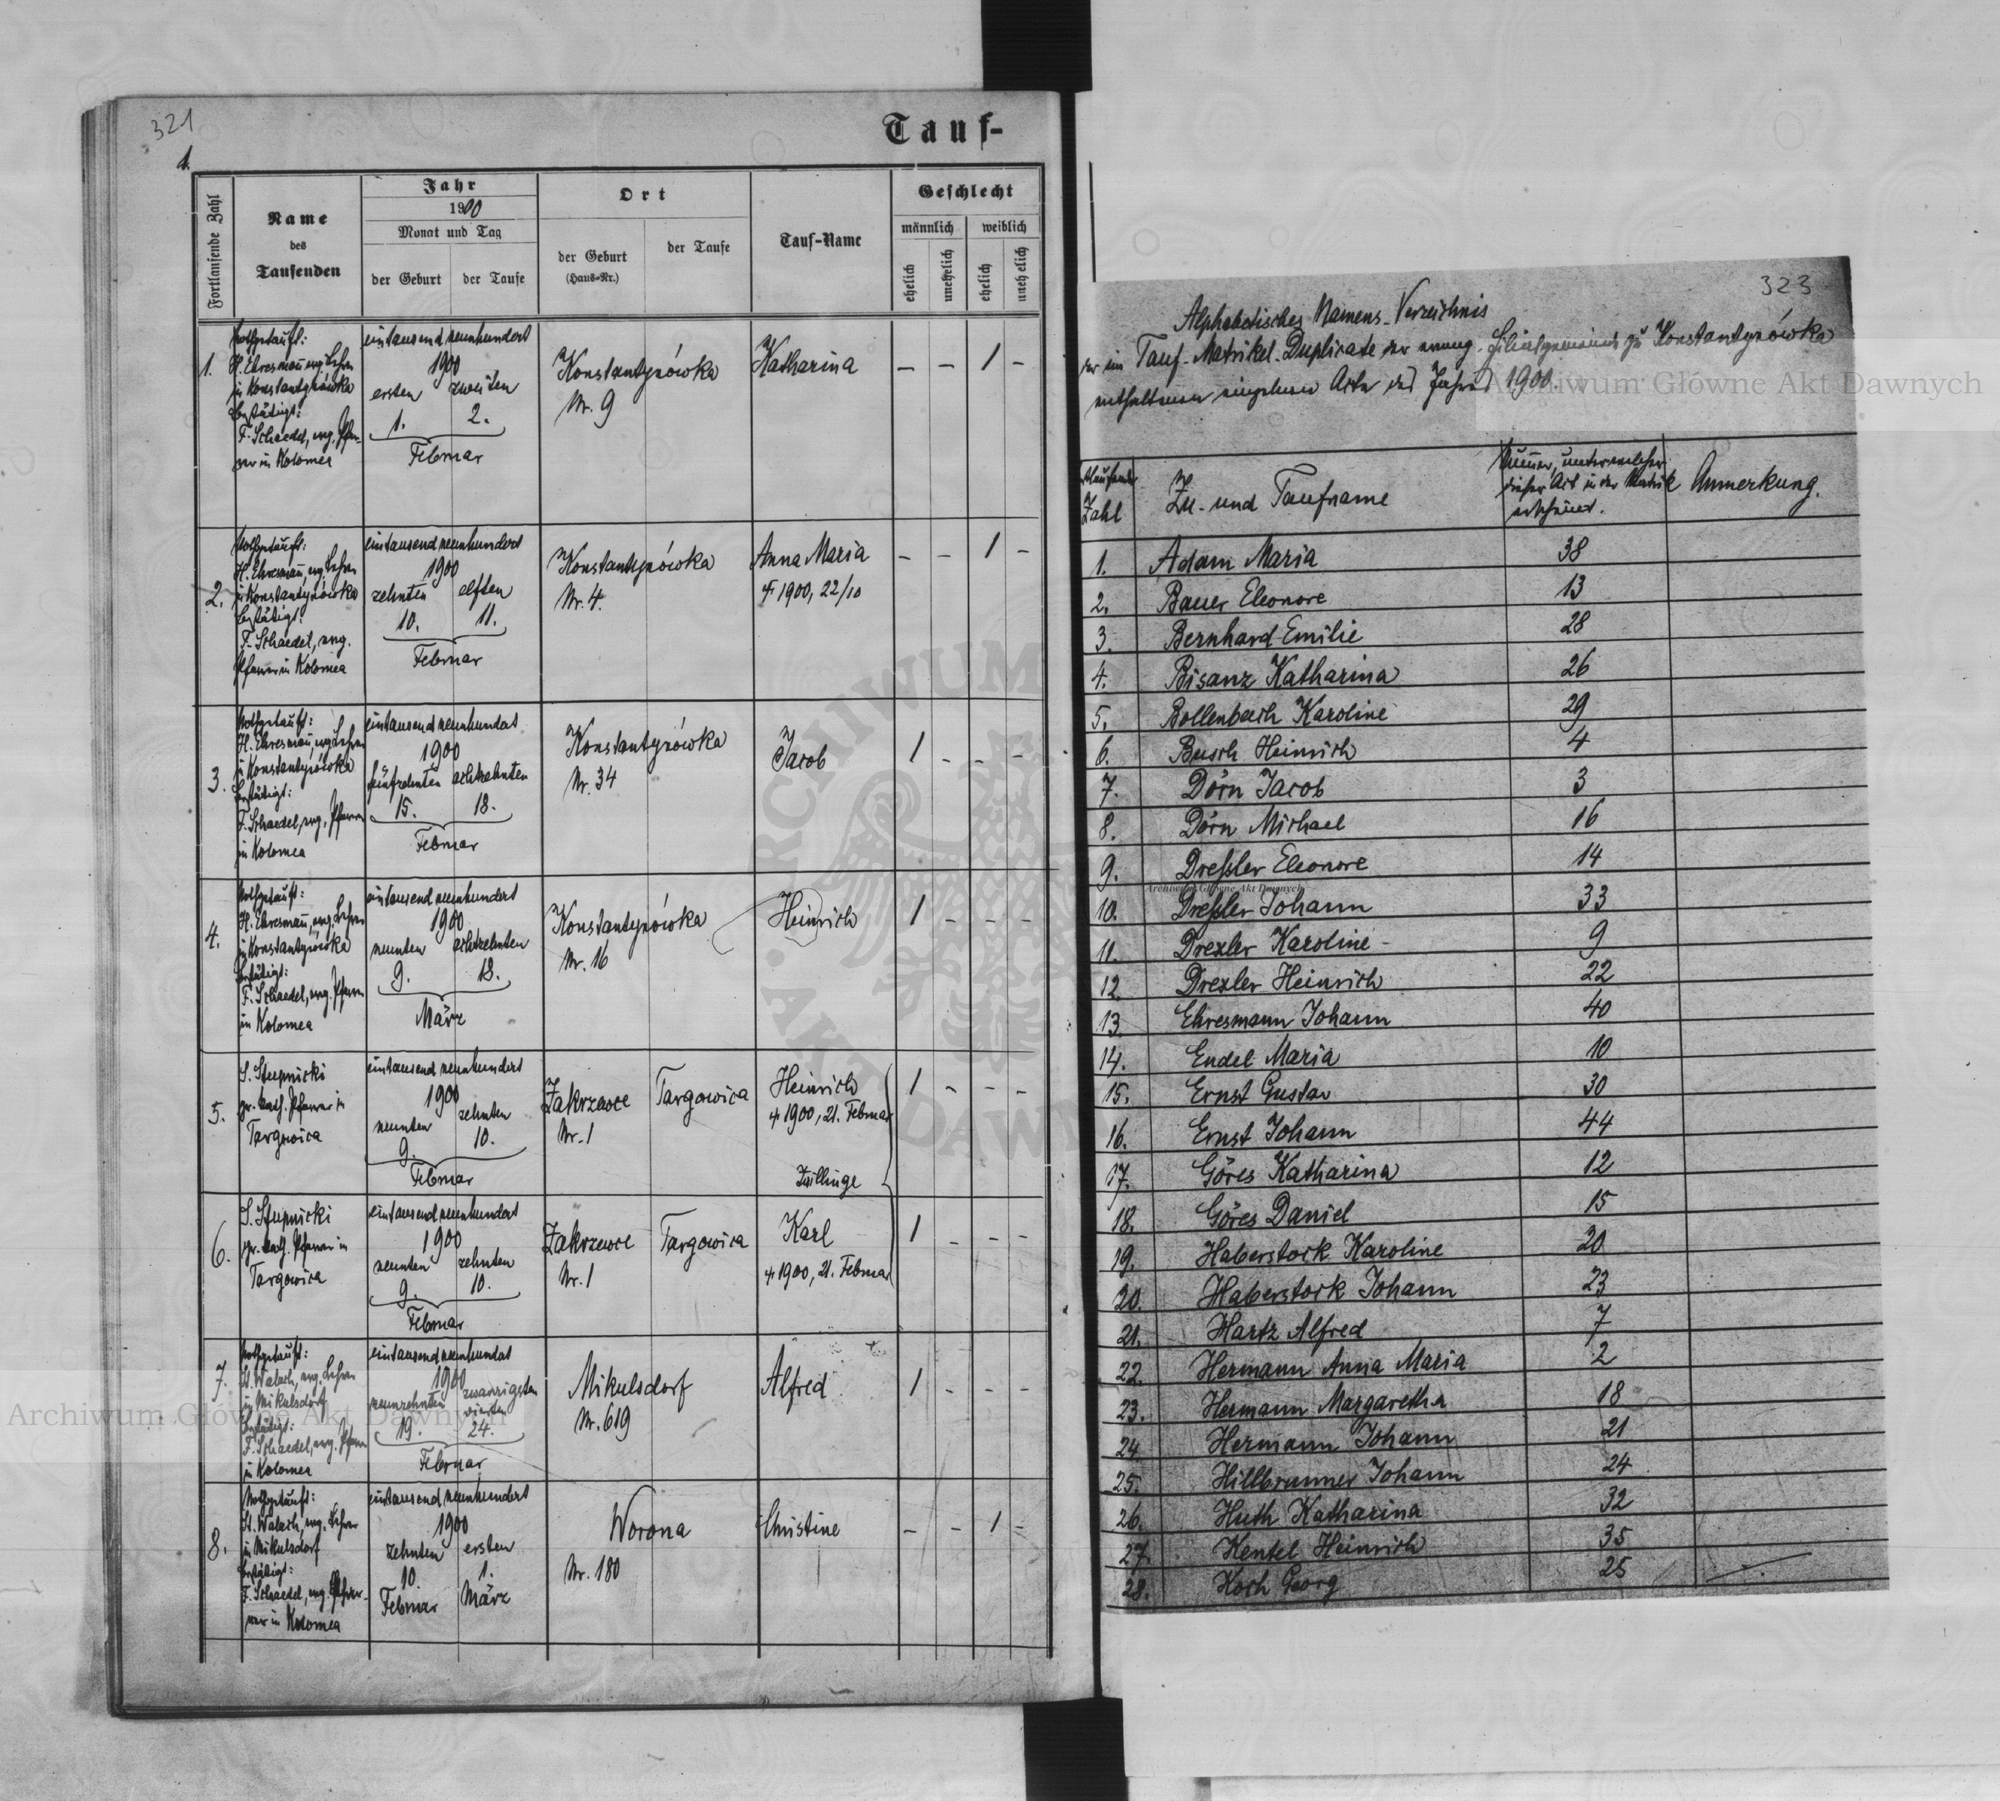 321
1.
Tauf-
Fortlaufende Zahl
Name
des
Taufenden
Jahr
1900
Monat und Tag
der Geburt
der Taufe
Ort
der Geburt
(Haus-Nr.)
der Taufe
Tauf-Name
Geschlecht
männlich
weiblich
ehelich
unehelich
ehelich
unehelich
1.
Nothgetauft:
H. Ehresmañ, evg. Lehrer
in Konstantynówka
bestätigt:
F. Schaedel, evg. Pfar-
rer in Kolomea
eintausend neunhundert
1900
ersten zweiten
1. 2.
Februar
Konstantynówka
Nr. 9
Katharina
— — 1 —
2.
Nothgetauft:
H. Ehresmañ, evg. Lehrer
in Konstantynówka
bestätigt:
F. Schaedel, evg.
Pfarrer in Kolomea
eintausend neunhundert
1900
zehnten elften
10. 11.
Februar
Konstantynówka
Nr. 4.
Anna Maria
† 1900, 22/10
— — 1 —
3.
Nothgetauft:
H. Ehresmañ, evg. Lehrer
in Konstantynówka
bestätigt:
F. Schaedel, evg. Pfarrer
in Kolomea
eintausend neunhundert
1900
fünfzehnten achtzehnten
15. 18.
Februar
Konstantynówka
Nr. 34
Jacob
1 - - -
4.
Nothgetauft:
H. Ehresmañ, evg. Lehrer
in Konstantynówka
bestätigt:
F. Schaedel, evg. Pfarrer
in Kolomea
eintausend neunhundert
1900
neunten achtzehnten
9. 18.
März
Konstantynówka
Nr. 16
Heinrich
1 - - -
5.
S. Stupnicki
gr. kath. Pfarrer in
Targowica
eintausend neunhundert
1900
neunten zehnten
9. 10.
Februar
Zakrzewce
Nr. 1
Targowica
Heinrich
† 1900, 21. Februar
Zwillinge
1 - - -
6.
S. Stupnicki
gr. kath. Pfarrer in
Targowica
eintausend neunhundert
1900
neunten zehnten
9. 10.
Februar
Zakrzewce
Nr. 1
Targowica
Karl
† 1900, 21. Februar
1 - - -
7.
Nothgetauft:
St. Walach, evg. Lehrer
in Mikulsdorf
bestätigt:
F. Schaedel, evg. Pfarrer
in Kolomea
eintausend neunhundert
1900
neunzehnten zwanzigsten
vierten
19. 24.
Februar
Mikulsdorf
Nr. 619
Alfred
1 - - -
8.
Nothgetauft:
St. Walach, evg. Lehrer
in Mikulsdorf
bestätigt:
F. Schaedel, evg. Pfar-
rer in Kolomea
eintausend neunhundert
1900
zehnten ersten
10. 1.
Februar März
Worona
Nr. 180
Christine
- - 1 -
323
Alphabetisches Namens-Verzeichnis
der im Tauf-Matrikel-Duplicate der evang. Filialgemeinde zu Konstantynówka
enthaltenen einzelnen Acte des Jahres 1900.
Zahl
Zu- und Taufname
Nummer, unter welcher
dieser Act in der Matrik
erscheint.
Anmerkung.
1. Adam Maria 38
2. Bauer Eleonore 13
3. Bernhard Emilie 28
4. Bisanz Katharina 26
5. Bollenbach Karoline 29
6. Busch Heinrich 4
7. Dörn Jacob 3
8. Dörn Michael 16
9. Dreßler Eleonore 14
10. Dreßler Johann 33
11. Drexler Karoline 9
12. Drexler Heinrich 22
13. Ehresmann Johann 40
14. Endel Maria 10
15. Ernst Gustav 30
16. Ernst Johann 44
17. Göres Katharina 12
18. Göres Daniel 15
19. Haberstock Karoline 20
20. Haberstock Johann 23
21. Hartz Alfred 7
22. Hermann Anna Maria 2
23. Hermann Margaretha 18
24. Hermann Johann 21
25. Hillbrunner Johann 24
26. Huth Katharina 32
27. Kentel Heinrich 35
28. Koch Georg 25
Archiwum Główne Akt Dawnych
Archiwum Główne Akt Dawnych
Archiwum Główne Akt Dawnych
ARCHIWUM
AKT DAWN